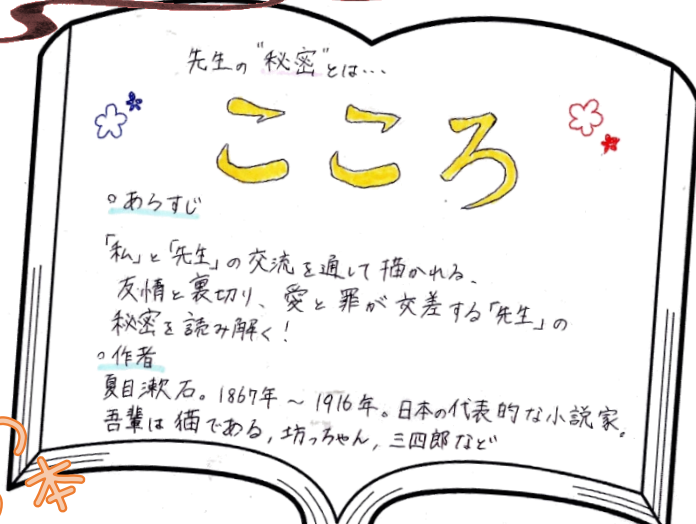 先生の"秘密"とは…
こころ
○あらすじ
「私」と「先生」の交流を通して描かれる、
友情と裏切り、愛と罪が交差する「先生」の
秘密を読み解く!
○作者
夏目漱石。1867年～1916年。日本の代表的な小説家。
吾輩は猫である,坊っちゃん,三四郎など
本